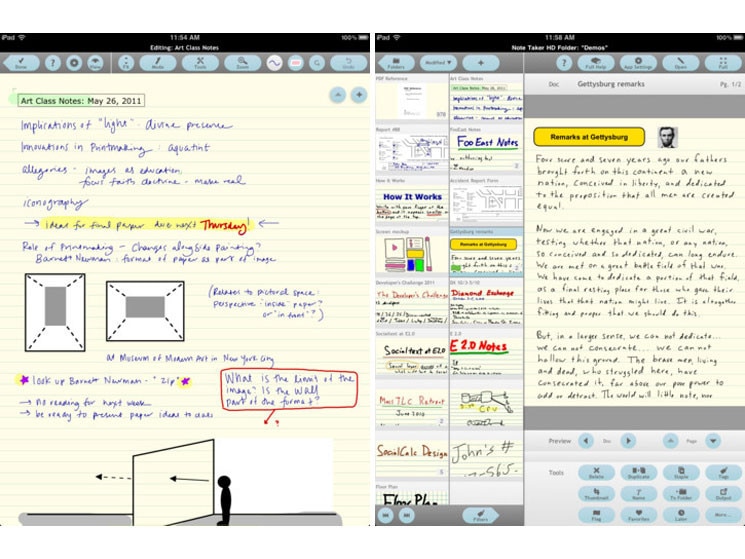 iPad
11:54 AM
100%
Editing: Art Class Notes
Done
?
Mode
Tools
Zoom
Undo
Art Class Notes: May 26, 2011
Implications of "light" - divine presence
Innovations in Printmaking: aquatint
allegories - images as education,
focus faith doctrine - make real
iconography
→ ideas for final paper due next Thursday! ←
Role of Printmaking - Changes alongside Painting?
Barnett Newman: format of paper as part of image
(Relates to pictorial space:
perspective: "inside" paper?
or "in front"?)
@ Museum of Modern Art in New York City
look up Barnett Newman - "Zip"
→ no reading for next week
→ be ready to present paper ideas to class
What is the limit of the
image? Is the wall
part of the format?
?
iPad
11:58 AM
100%
Note Taker HD Folder: "Demos"
Folders
Modified ▼
+
?
Full Help
App Settings
Open
Full
PDF Reference
978
Art Class Notes
Report 4BB
FooEast Notes
Foo East Notes
2
How It Works
How It Works
Accident Report Form
Screen mockup
Gettysburg remarks
Remarks at Gettysburg
Developer's Challenge 2011
The Developer's Challenge
Diamond Exchange
Socialtext at E2.0
Socialtext at E2.0
E 2.0 Notes
Mass TLC Retreat
June 2010
2
SocialCalc Design
5
John's #
-565-
Floor Plan
Floor Plan
Filters
Doc
Gettysburg remarks
Pg. 1/2
Remarks at Gettysburg
Four score and seven years ago our fathers
brought forth on this continent a new
nation, conceived in liberty, and dedicated
to the proposition that all men are created
equal.
Now we are engaged in a great civil war,
testing whether that nation, or any nation,
so conceived and so dedicated, can long endure.
We are met on a great battle field of that war.
We have come to dedicate a portion of that field,
as a final resting place for those who gave their
lives that that nation might live. It is altogether
fitting and proper that we should do this.
But, in a larger sense, we can not dedicate...
we can not consecrate... we can not
hallow this ground. The brave men, living
and dead, who struggled here, have
consecrated it, far above our poor power to
add or detract. The world will little note, nor
Preview
Doc
Page
Tools
Delete
Duplicate
Staple
Tags
Thumbnail
Name
To Folder
Output
Flag
Favorites
Later
More...